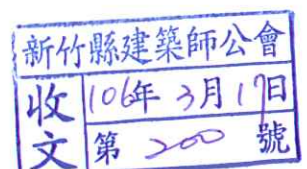 新竹縣建築師公會
收文
106年3月17日
第 200 號